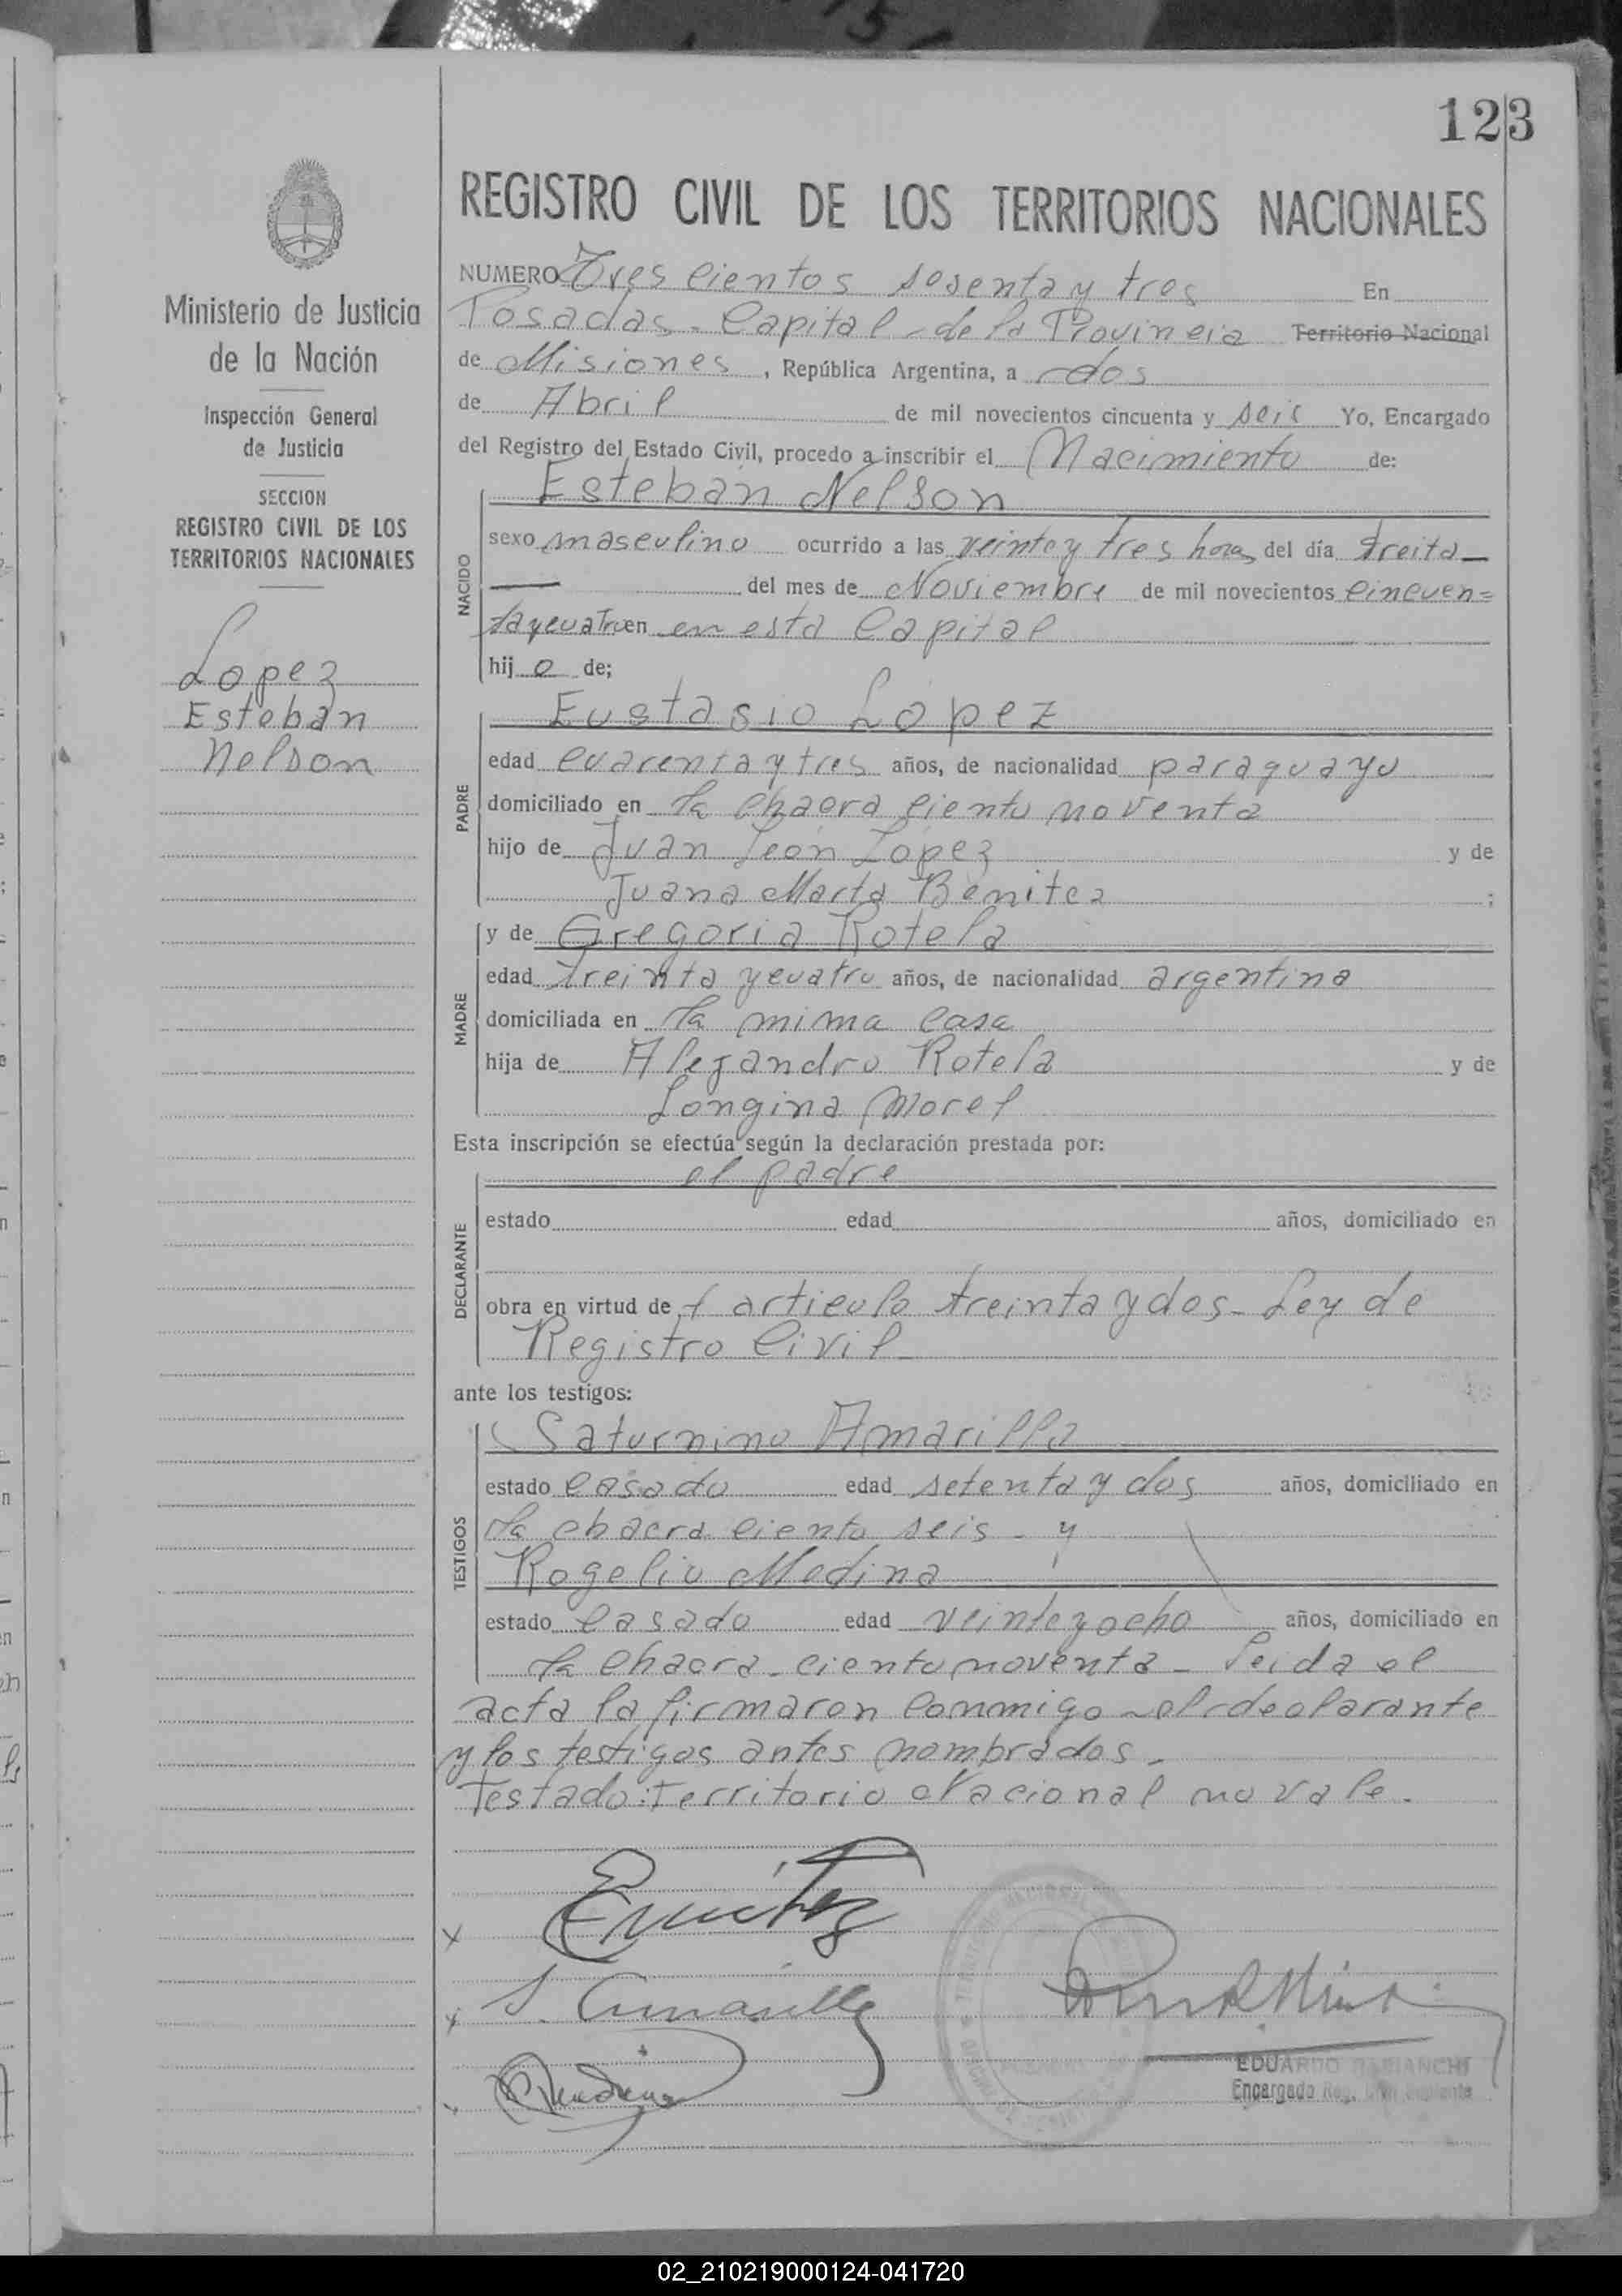 123
REGISTRO CIVIL DE LOS TERRITORIOS NACIONALES
NUMERO Tres cientos sesenta y tres En
Posadas - Capital de la Provincia Territorio Nacional
de Misiones, República Argentina, a dos
de Abril de mil novecientos cincuenta y seis Yo, Encargado
del Registro del Estado Civil, procedo a inscribir el Nacimiento de:
NACIDO
Esteban Nelson
sexo masculino ocurrido a las veinte y tres horas del día treita
— del mes de Noviembre de mil novecientos cincuen=
ta y cuatro en en esta Capital
hij o de;
PADRE
Eustasio López
edad cuarenta y tres años, de nacionalidad paraguayo
domiciliado en la chacra ciento noventa
hijo de Juan León López y de
Juana Marta Benitez ;
MADRE
y de Gregoria Rotela
edad treinta y cuatro años, de nacionalidad argentina
domiciliada en la mima casa
hija de Alejandro Rotela y de
Longina Morel
Esta inscripción se efectúa según la declaración prestada por:
DECLARANTE
el padre
estado edad años, domiciliado en
obra en virtud de l articulo treinta y dos - Ley de
Registro Civil
ante los testigos:
TESTIGOS
Saturnino Amarilla
estado casado edad setenta y dos años, domiciliado en
la chacra ciento seis - y
Rogelio Medina
estado casado edad veinte y ocho años, domiciliado en
la chacra - ciento noventa - Leida el
acta la firmaron conmigo el declarante
y los testigos antes nombrados.
Testado: Territorio Nacional no vale.
S. Amarilla
EDUARDO
Encargado Reg. Civil
Ministerio de Justicia
de la Nación
Inspección General
de Justicia
SECCION
REGISTRO CIVIL DE LOS
TERRITORIOS NACIONALES
Lopez
Esteban
Nelson
02_210219000124-041720